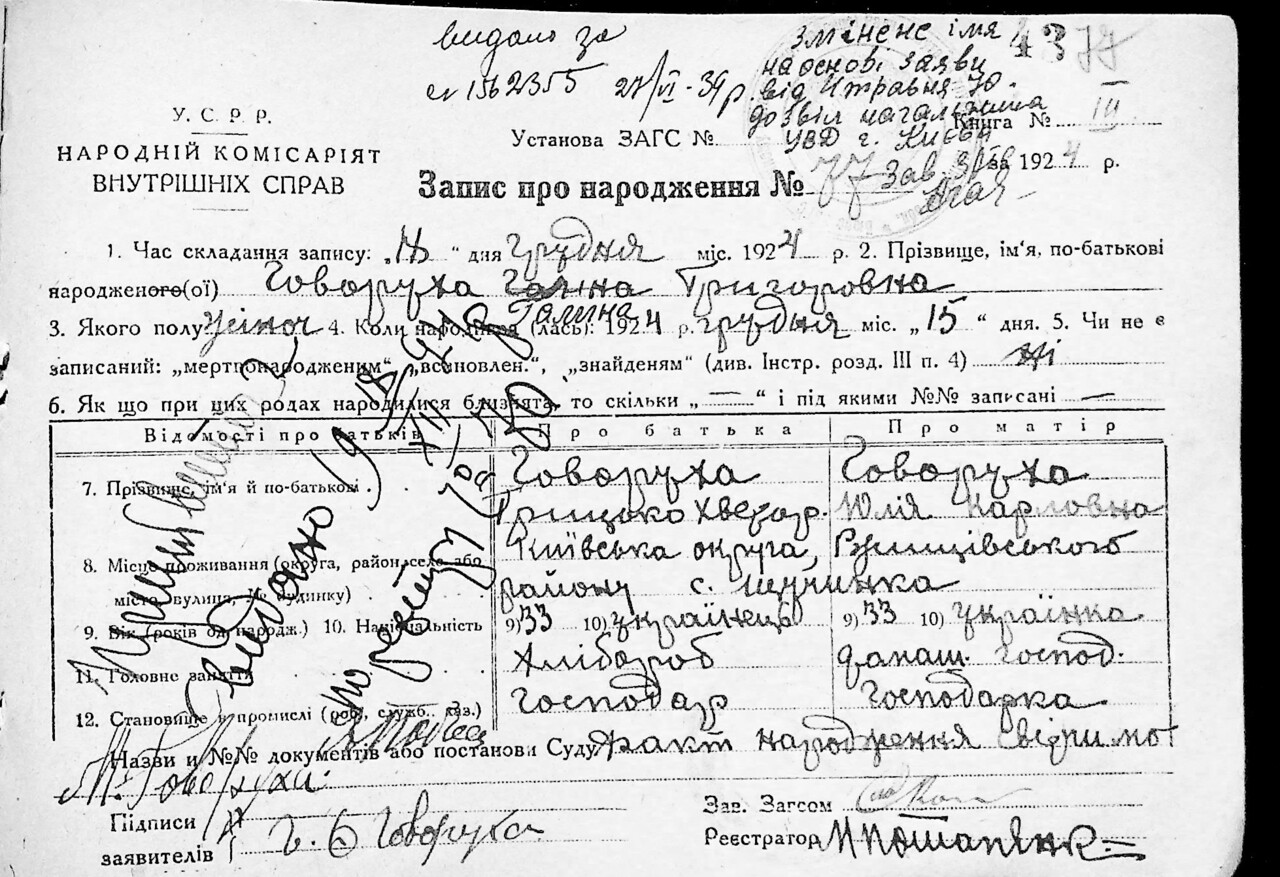 видано за
змінене імя
на основі заяви
від 4 травня 40.
дозвіл начальника
УВД г. Київа
Зав.
№ 1562355 27/VI-39 р.
4377
У. С. Р. Р.
НАРОДНІЙ КОМІСАРІЯТ
ВНУТРІШНІХ СПРАВ
Установа ЗАГС №
Книга № III
Запис про народження № 77 за 1924 р.
1. Час складання запису: „18“ дня грудня міс. 1924 р. 2. Прізвище, ім'я, по-батькові
народженого(ої) Говоруха Ганна Григоровна
Галина
3. Якого полу жіноч 4. Коли народився (лась): 1924 р. грудня міс. „15“ дня. 5. Чи не є
записаний: „мертвонародженим“ „всиновлен.“, „знайденям“ (див. Інстр. розд. III п. 4) Ні
6. Як що при цих родах народилися близнята, то скільки „—“ і під якими №№ записані —
Відомості про батьків Про батька Про матір
7. Прізвище, ім'я й по-батькові Говоруха Говоруха
Грицько Хведор. Юлія Карловна
8. Місце проживання (округа, район, село або Київська округа, Ржищівського
місто, вулиця, № будинку) району с. Щучинка
9. Вік (років од народж.) 10. Національність 9) 33 10) українець 9) 33 10) українка
11. Головне заняття Хлібороб домаш. господ.
12. Становище в промислі (роб., служб., хаз.) Господар Господарка
Назви и №№ документів або постанови Суду факт народження свідчимо
М. Говоруха
Підписи
заявителів Г. Говоруха
Зав. Загсом
Реєстратор